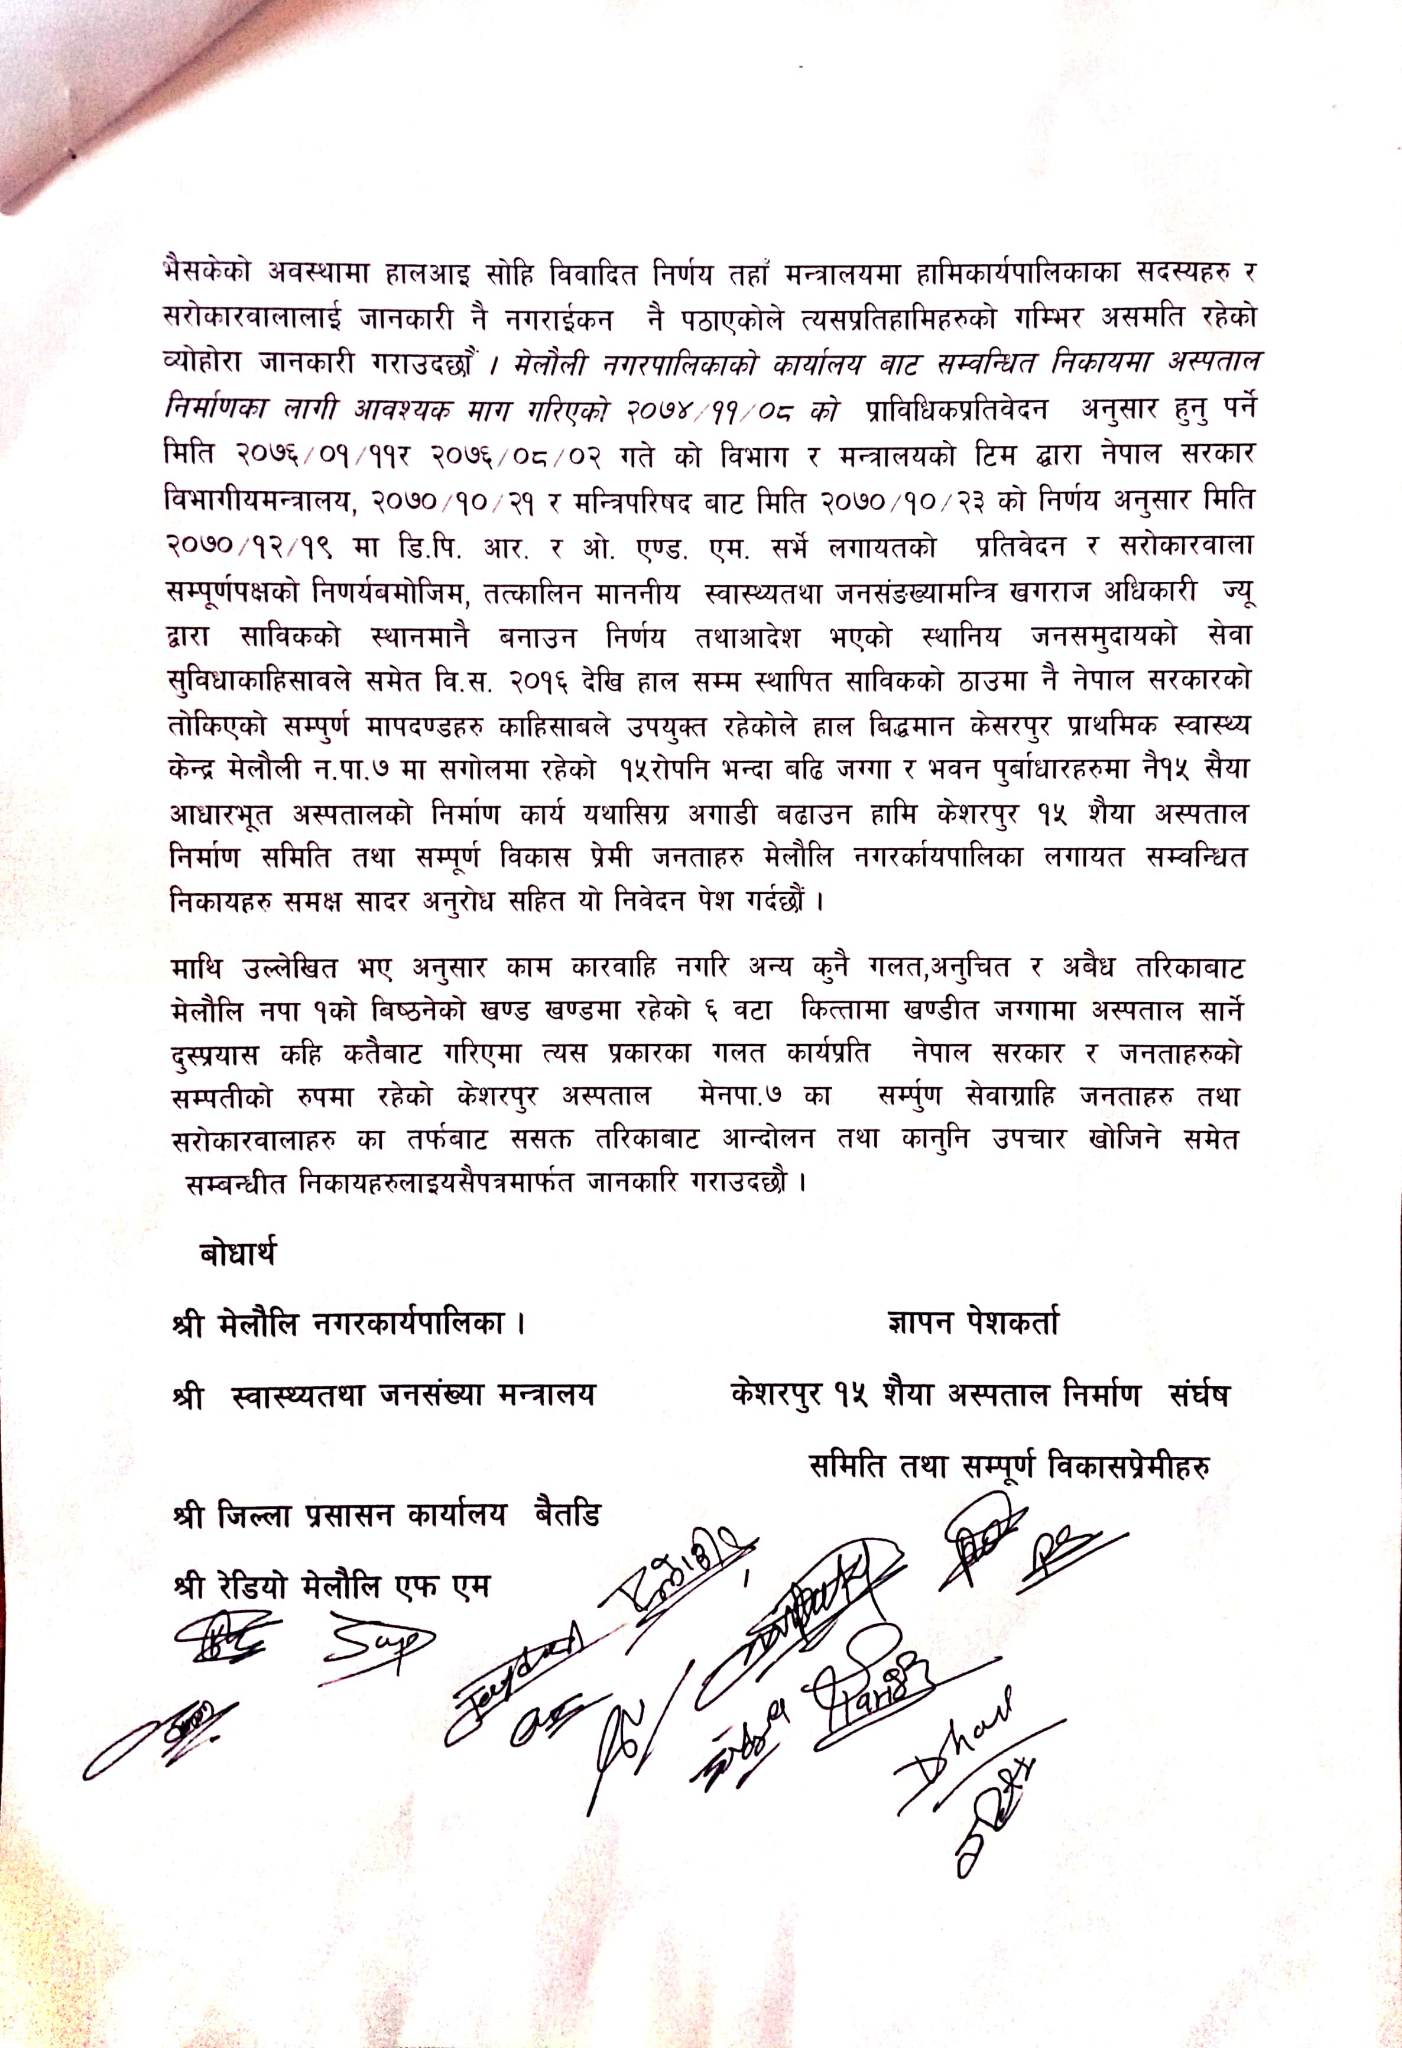 भैसकेको अवस्थामा हालआइ सोहि विवादित निर्णय तहाँ मन्त्रालयमा हामिकार्यपालिकाका सदस्यहरु र
सरोकारवालालाई जानकारी नै नगराईकन नै पठाएकोले त्यसप्रतिहामिहरुको गम्भिर असमति रहेको
व्योहोरा जानकारी गराउदछौं । मेलौली नगरपालिकाको कार्यालय बाट सम्वन्धित निकायमा अस्पताल
निर्माणका लागी आवश्यक माग गरिएको २०७४/११/०८ को प्राविधिकप्रतिवेदन अनुसार हुनु पर्ने
मिति २०७६/०१/११र २०७६/०८/०२ गते को विभाग र मन्त्रालयको टिम द्वारा नेपाल सरकार
विभागीयमन्त्रालय, २०७०/१०/२१ र मन्त्रिपरिषद बाट मिति २०७०/१०/२३ को निर्णय अनुसार मिति
२०७०/१२/१९ मा डि.पि. आर. र ओ. एण्ड. एम. सर्भे लगायतको प्रतिवेदन र सरोकारवाला
सम्पूर्णपक्षको निणर्यबमोजिम, तत्कालिन माननीय स्वास्थ्यतथा जनसंङख्यामन्त्रि खगराज अधिकारी ज्यू
द्वारा साविकको स्थानमानै बनाउन निर्णय तथाआदेश भएको स्थानिय जनसमुदायको सेवा
सुविधाकाहिसावले समेत वि.स. २०१६ देखि हाल सम्म स्थापित साविकको ठाउमा नै नेपाल सरकारको
तोकिएको सम्पुर्ण मापदण्डहरु काहिसाबले उपयुक्त रहेकोले हाल बिद्धमान केसरपुर प्राथमिक स्वास्थ्य
केन्द्र मेलौली न.पा.७ मा सगोलमा रहेको १५रोपनि भन्दा बढि जग्गा र भवन पुर्बाधारहरुमा नै१५ सैया
आधारभूत अस्पतालको निर्माण कार्य यथासिग्र अगाडी बढाउन हामि केशरपुर १५ शैया अस्पताल
निर्माण समिति तथा सम्पूर्ण विकास प्रेमी जनताहरु मेलौलि नगरर्कायपालिका लगायत सम्वन्धित
निकायहरु समक्ष सादर अनुरोध सहित यो निवेदन पेश गर्दछौं ।
माथि उल्लेखित भए अनुसार काम कारवाहि नगरि अन्य कुनै गलत,अनुचित र अबैध तरिकाबाट
मेलौलि नपा १को बिष्ठनेको खण्ड खण्डमा रहेको ६ वटा कित्तामा खण्डीत जग्गामा अस्पताल सार्ने
दुस्प्रयास कहि कतैबाट गरिएमा त्यस प्रकारका गलत कार्यप्रति नेपाल सरकार र जनताहरुको
सम्पतीको रुपमा रहेको केशरपुर अस्पताल मेनपा.७ का सर्म्पुण सेवाग्राहि जनताहरु तथा
सरोकारवालाहरु का तर्फबाट ससक्त तरिकाबाट आन्दोलन तथा कानुनि उपचार खोजिने समेत
सम्बन्धीत निकायहरुलाइयसैपत्रमार्फत जानकारि गराउदछौ ।
बोधार्थ
श्री मेलौलि नगरकार्यपालिका । ज्ञापन पेशकर्ता
श्री स्वास्थ्यतथा जनसंख्या मन्त्रालय केशरपुर १५ शैया अस्पताल निर्माण संर्घष
समिति तथा सम्पूर्ण विकासप्रेमीहरु
श्री जिल्ला प्रसासन कार्यालय बैतडि
श्री रेडियो मेलौलि एफ एम